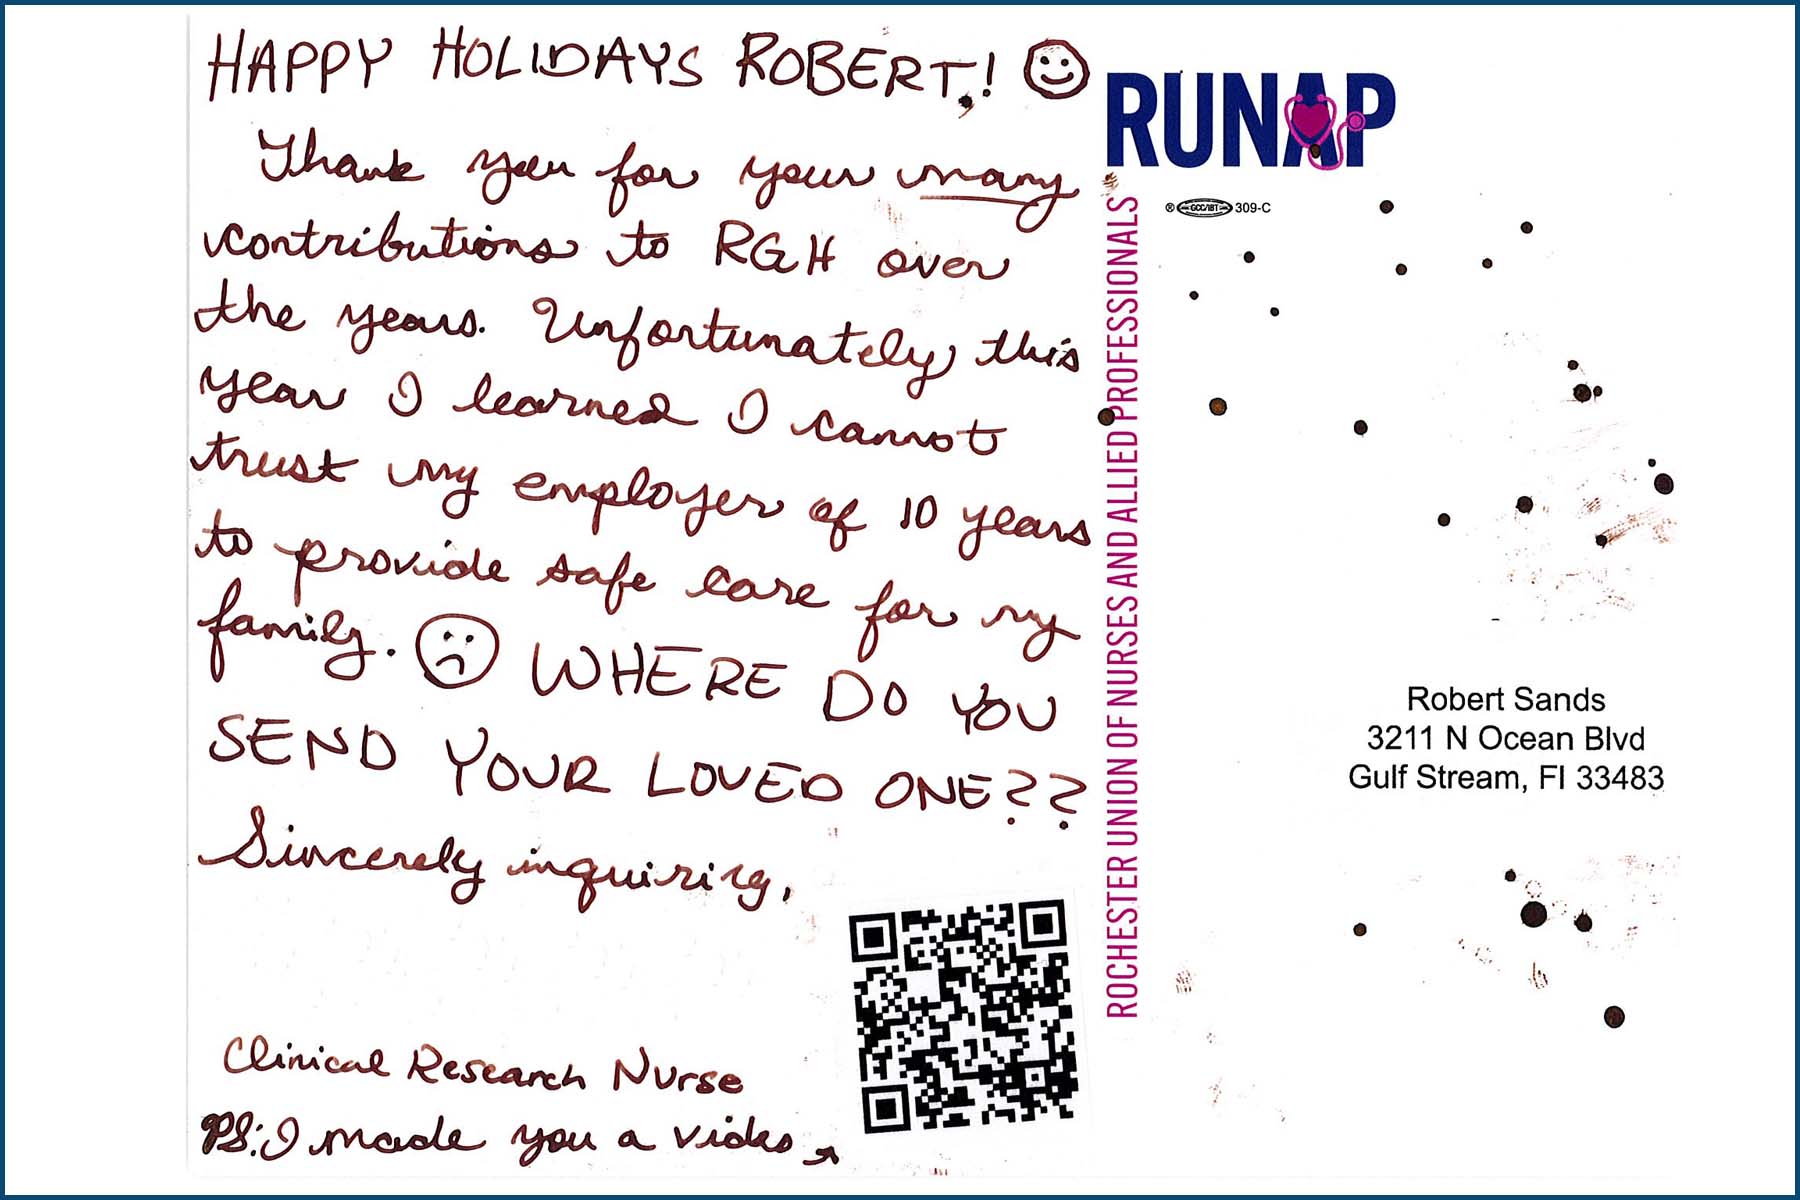 HAPPY HOLIDAYS ROBERT! ☺
Thank you for your many
contributions to RGH over
the years. Unfortunately this
year I learned I cannot
trust my employer of 10 years
to provide safe care for my
family. ☹ WHERE DO YOU
SEND YOUR LOVED ONE??
Sincerely inquiring,
Clinical Research Nurse
PS: I made you a video
RUNAP
® GCC/IBT 309-C
ROCHESTER UNION OF NURSES AND ALLIED PROFESSIONALS
Robert Sands
3211 N Ocean Blvd
Gulf Stream, Fl 33483